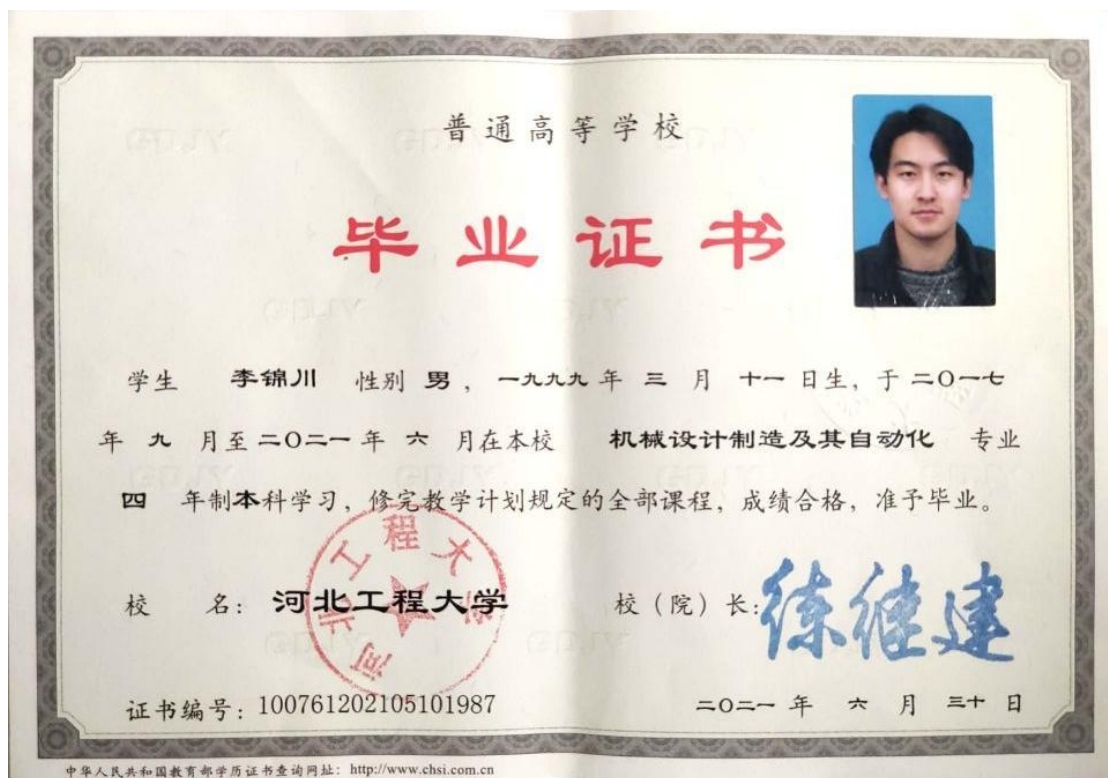 普通高等学校
毕业证书
学生 李锦川 性别 男，一九九九年 三 月 十一 日生，于二〇一七
年 九 月至二〇二一年 六 月在本校 机械设计制造及其自动化 专业
四 年制本科学习，修完教学计划规定的全部课程，成绩合格，准予毕业。
河北工程大学
校 名：河北工程大学 校（院）长：练继建
证书编号：100761202105101987 二〇二一 年 六 月 三十 日
中华人民共和国教育部学历证书查询网址：http://www.chsi.com.cn